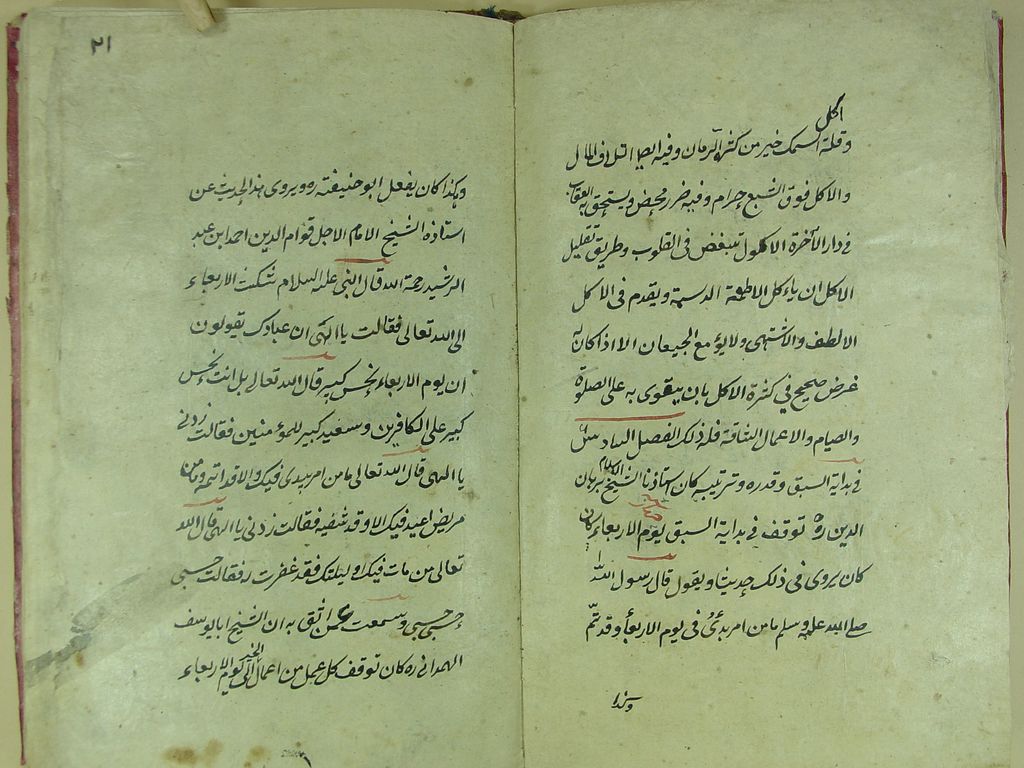 اكل
وقلة السمك خير من كثرة الرمان وفيه ايضا اتلاف المال
والاكل فوق الشبع حرام وفيه ضرر محض ويستحق به العقاب
فى دار الآخرة الاكول تبغض فى القلوب وطريق تقليل
الاكل ان ياءكل الاطعمة الدسمة ويقدم فى الاكل
الالطف والاشتهى ولايؤ مع الجيعان الا اذا كان له
غرض صحيح فى كثرة الاكل بان يتقوى به على الصلوة
والصيام والاعمال الشاقة فله ذلك الفصل السادس
فى بداية السبق وقدره وترتيبه كان استاذنا الشيخ الاسلام برهان
الدين ره توقف فى بداية السبق يوم الاربعاء كان
كان يروى فى ذلك حديثا ويقول قال رسول الله
صلى الله عليه وسلم ما من امر بدئ فى يوم الاربعاء وقد تم
وهكذا
٢١
وهكذا كان يفعل ابو حنيفة ره ويروى هذا الحديث عن
استاذه الشيخ الامام الاجل قوام الدين احمد ابن عبد
الرشيد رحمة الله قال النبى عليه السلام شكت الاربعاء
الى الله تعالى فقالت يا الهى ان عبادك يقولون
ان يوم الاربعاء نحس كبير قال الله تعالى بل انت نحس
كبير على الكافرين وسعيد كبير للمؤمنين فقالت زدنى
يا الهى قال الله تعالى ما من امر بدى فيك والا قد اتم وما من
مريض اعيد فيك الا وقد شفيه فقالت زدنى يا الهى قال الله
تعالى من مات فيك او ليلتك فقد غفرت له فقالت حسبى
حسبى حسبى وسمعت ممن اثق به ان الشيخ ابا يوسف
الهمدانى ره كان توقف كل عمل من اعمال الخير الى يوم الاربعاء